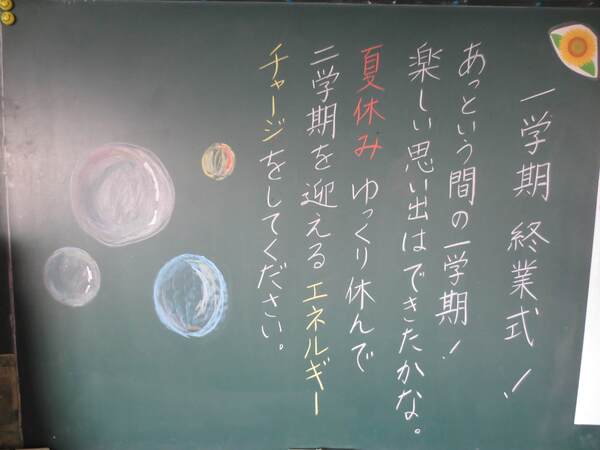 一学期 終業式！
あっという間の一学期！
楽しい思い出はできたかな。
夏休み ゆっくり休んで
二学期を迎える エネルギー
チャージをしてください。